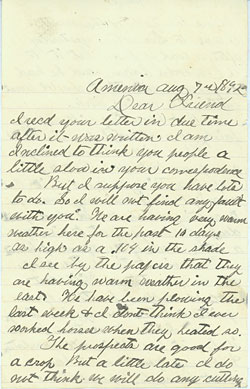 Amenia Aug 7th 1892
Dear Friend
I recd your letter in due time
after it was written. I am
Inclined to think you people a
little slow in your correspondence
But I suppose you have lots
to do. So I will not find any fault
with you. We are having very warm
weather here for the past 10 days
as high as 104 in the shade
I see by the papers that they
are having warm weather in the
East. We have been plowing the
last week & I dont think I ever
worked horses when they heated so.
The prospects are good for
a crop But a little late I do
not think we will do any cutting